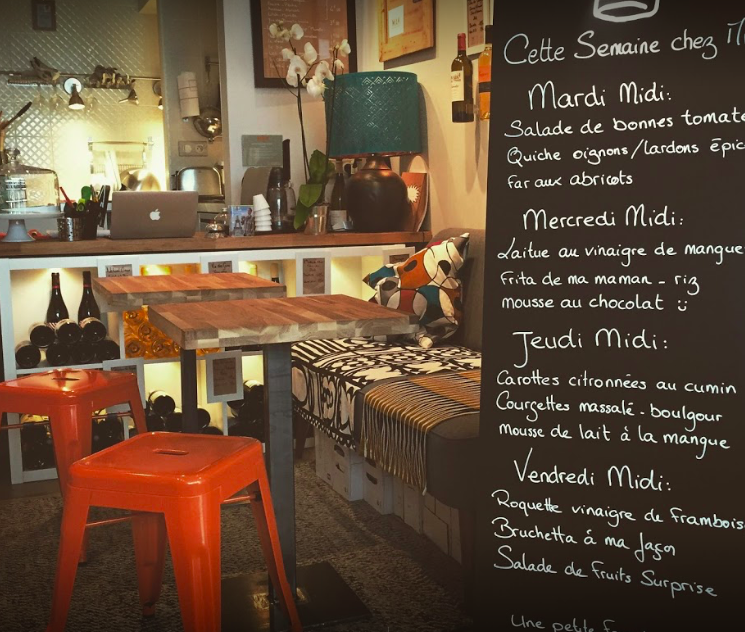 Cette Semaine chez
Mardi Midi:
Salade de bonnes tomate
Quiche oignons/lardons épic
far aux abricots
Mercredi Midi:
Laitue au vinaigre de mangue
Frita de ma maman - riz
mousse au chocolat
Jeudi Midi:
Carottes citronnées au cumin
Courgettes massalé - boulgour
Mousse de lait à la mangue
Vendredi Midi:
Roquette vinaigre de frambois
Bruchetta à ma façon
Salade de fruits Surprise
Une petite